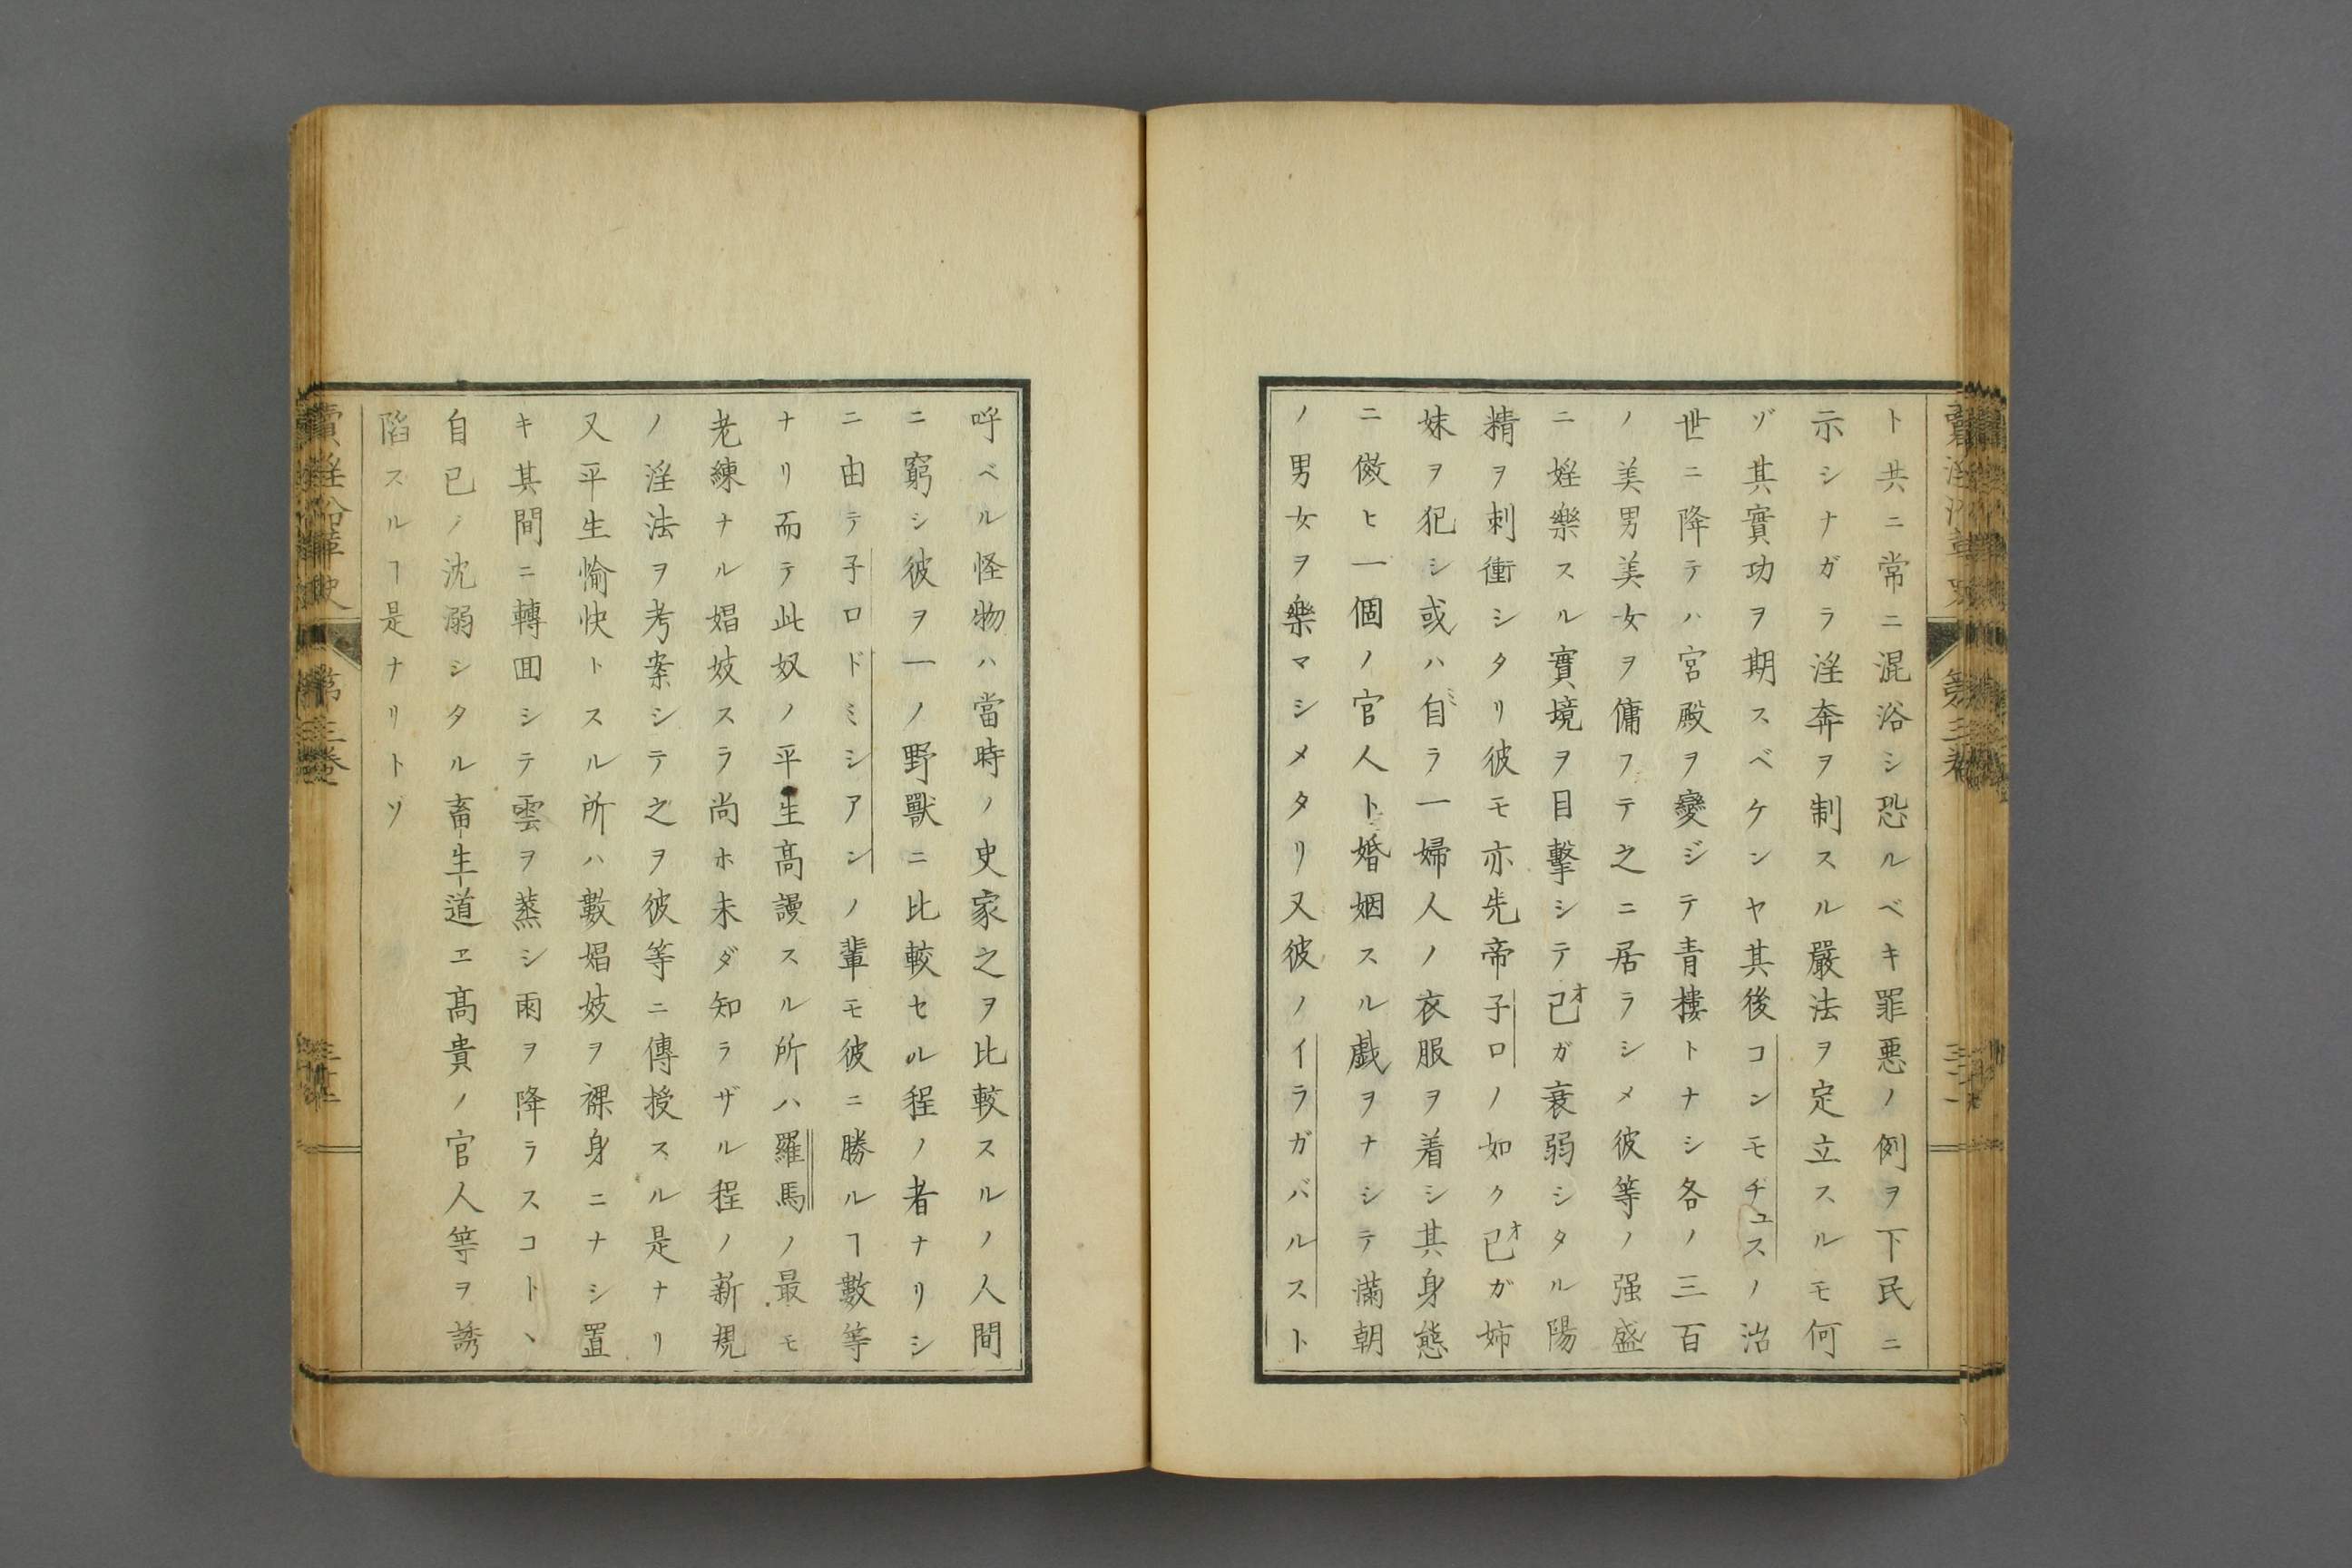 ト共ニ常ニ混浴シ恐ルベキ罪悪ノ例ヲ下民ニ
示シナガラ淫奔ヲ制スル嚴法ヲ定立スルモ何
ゾ其實功ヲ期スベケンヤ其後コンモヂュスノ治
世ニ降テハ宮殿ヲ變ジテ青樓トナシ各ノ三百
ノ美男美女ヲ傭フテ之ニ居ラシメ彼等ノ强盛
ニ婬樂スル實境ヲ目擊シテ己オガ衰弱シタル陽
精ヲ刺衝シタリ彼モ亦先帝子ロノ如ク己オガ姉
妹ヲ犯シ或ハ自ミラ一婦人ノ衣服ヲ着シ其身態
ニ倣ヒ一個ノ官人ト婚姻スル戯ヲナシテ滿朝
ノ男女ヲ樂マシメタリ又彼ノイラガバルスト
呼ベル怪物ハ當時ノ史家之ヲ比較スルノ人間
ニ窮シ彼ヲ一ノ野獸ニ比較セル程ノ者ナリシ
ニ由テ子ロドミシアンノ輩モ彼ニ勝ルヿ數等
ナリ而テ此奴ノ平生高謾スル所ハ羅馬ノ最モ
老練ナル娼妓スラ尚ホ未ダ知ラザル程ノ新規
ノ淫法ヲ考案シテ之ヲ彼等ニ傳授スル是ナリ
又平生愉快トスル所ハ數娼妓ヲ裸身ニナシ置
キ其間ニ轉囬シテ雲ヲ蒸シ雨ヲ降ラスコト、
自已ノ沈溺シタル畜生道ヱ高貴ノ官人等ヲ誘
陷スルヿ是ナリトゾ
賣淫沿革史 第三卷